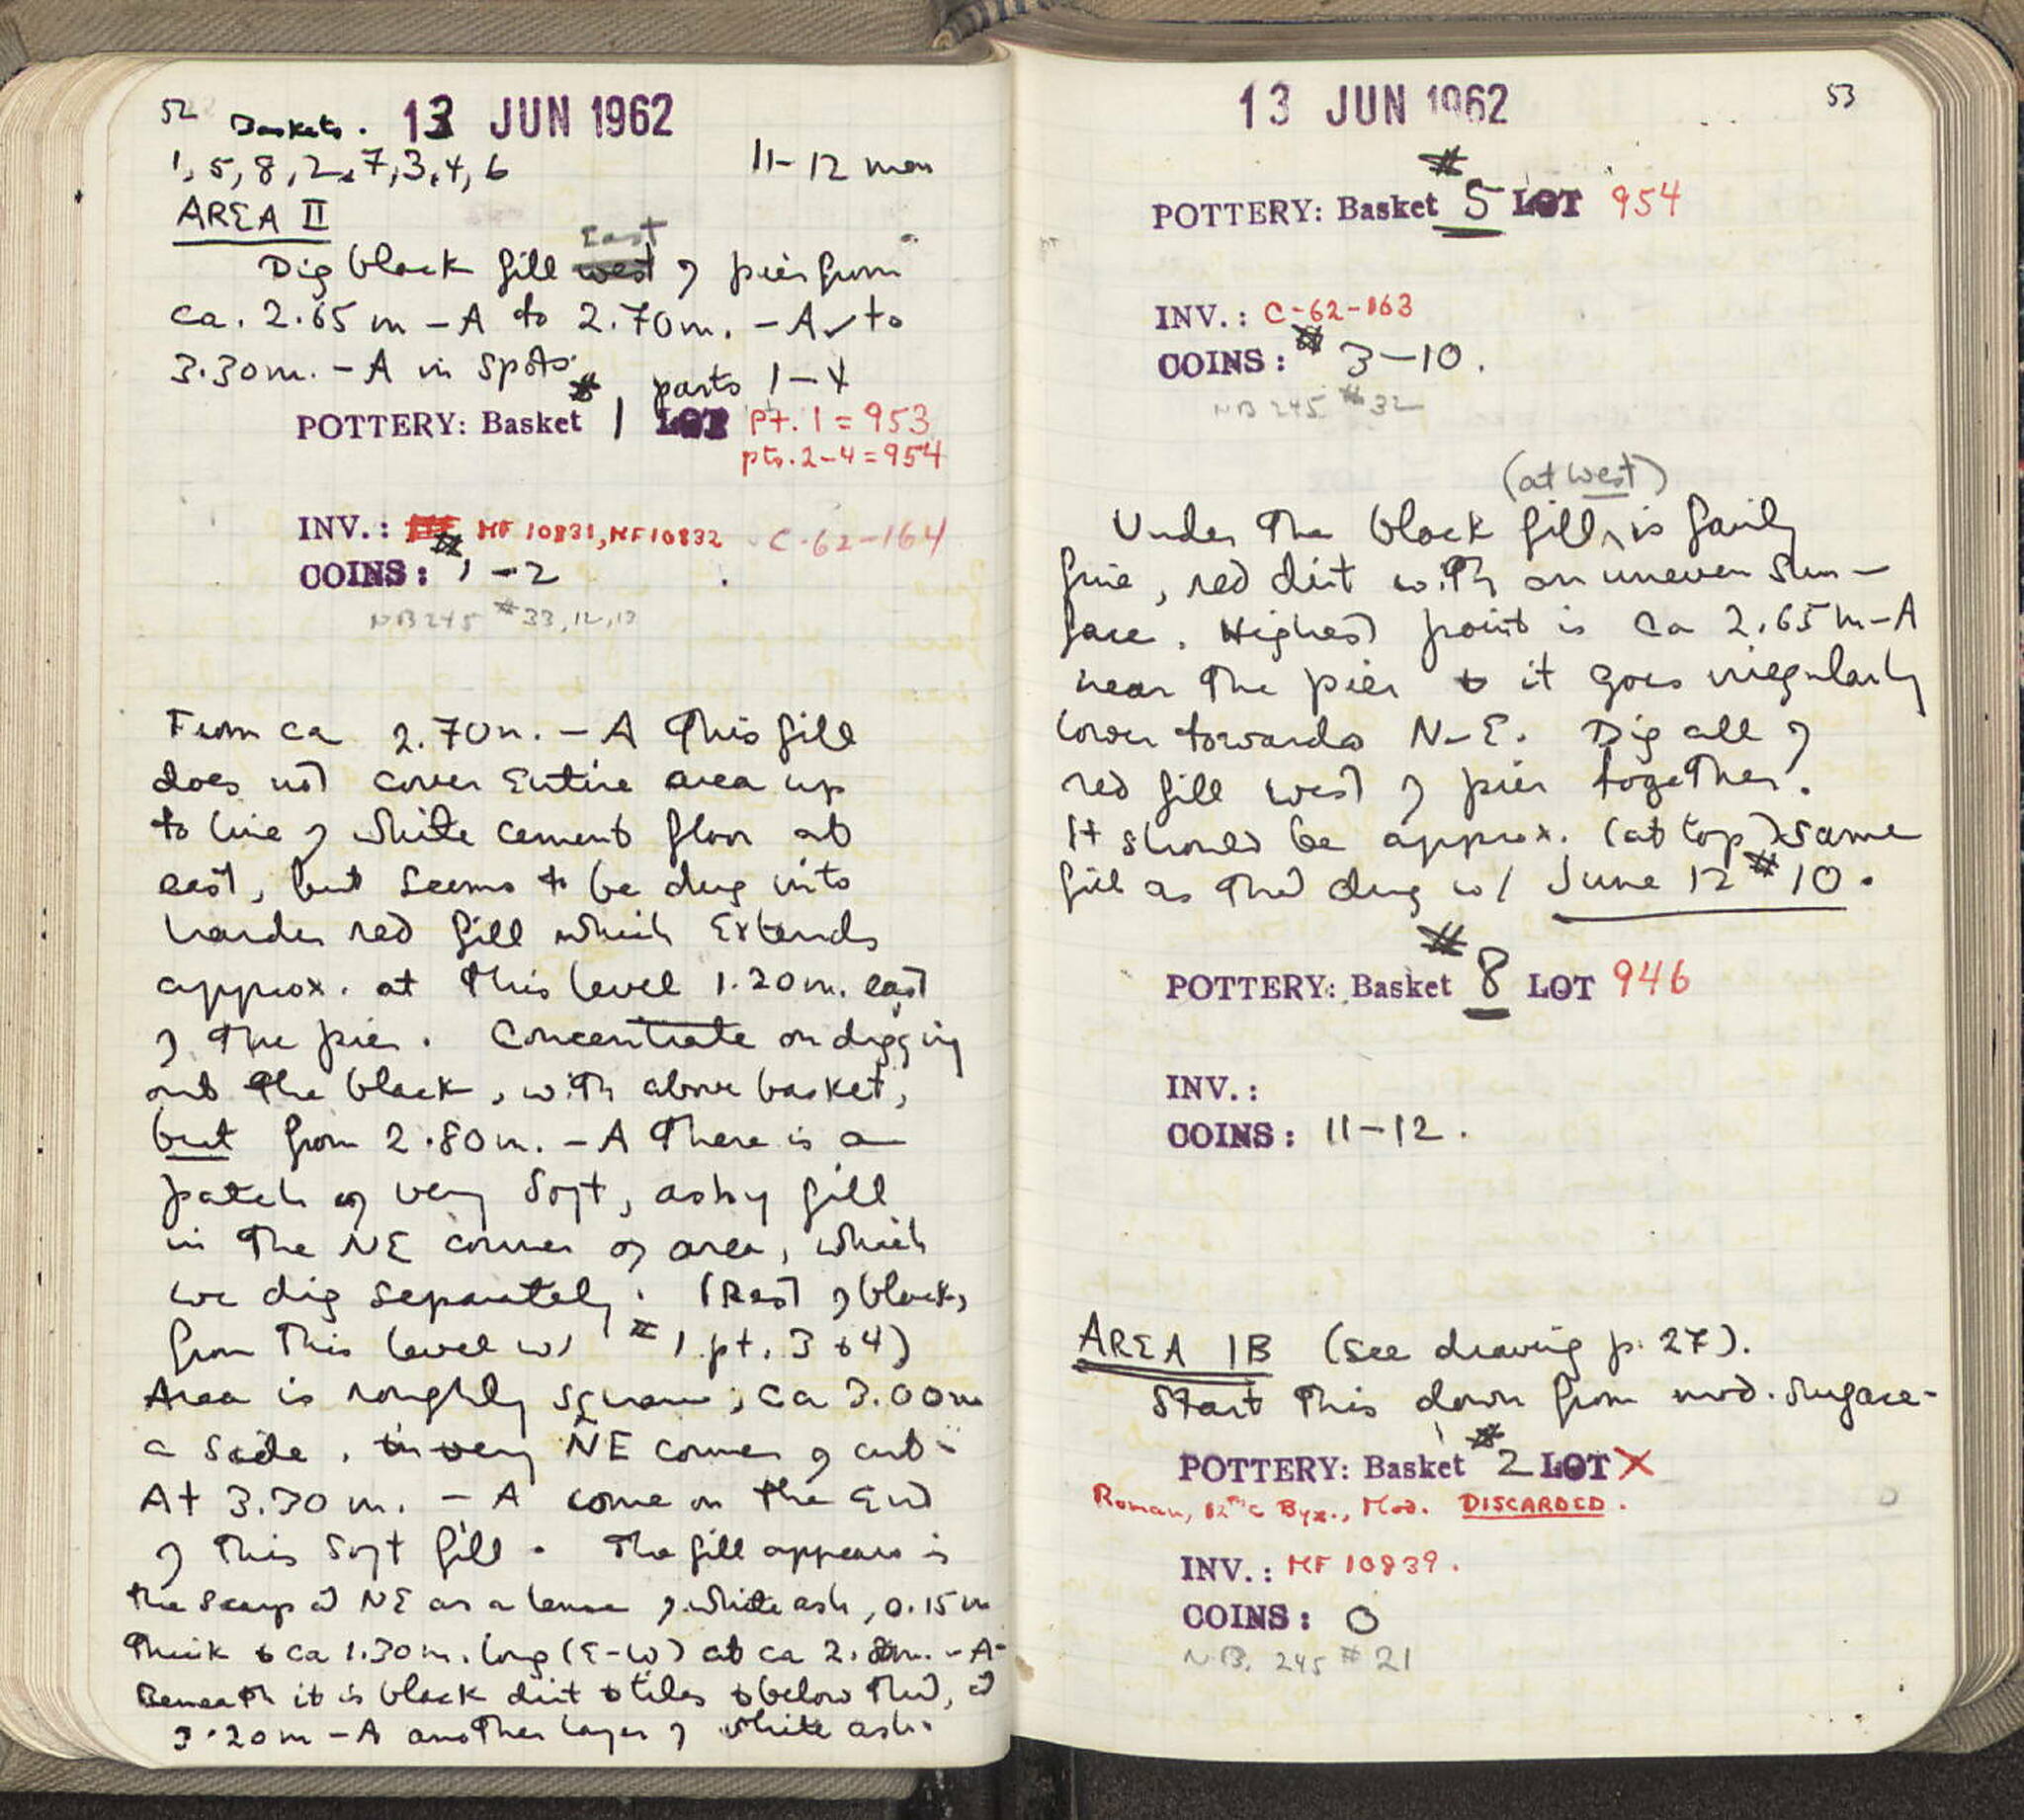 52 Baskets. 13 JUN 1962
1, 5, 8, 2, 7, 3, 4, 6 11-12 men
AREA II
East
Dig black fill west of pier from
ca. 2.65 m - A to 2.70m. - A to
3.30m. - A in spots.
# parts 1-4
POTTERY: Basket 1 LOT Pt. 1 = 953
pts. 2-4 = 954
INV.: MF 10831, MF 10832 C-62-164
COINS: # 1-2
NB 245 #33, 12, 13
From ca 2.70m. - A this fill
does not cover entire area up
to line of white cement floor at
east, but seems to be dug into
harder red fill which extends
approx. at this level 1.20m. east
of the pier. Concentrate on digging
out the black, with above basket,
but from 2.80m. - A there is a
patch of very soft, ashy fill
in the NE corner of area, which
we dig separately. (Rest of black,
from this level w/ #1 pt. 3 & 4)
Area is roughly square, ca 3.00m
a side, in very NE corner of cut.
At 3.30 m. - A come on the end
of this soft fill. The fill appears in
the scarp at NE as a lense of white ash, 0.15m
thick & ca 1.30m. long (E-W) at ca 2.80m. - A.
Beneath it is black dirt & tiles & below that, at
3.20m - A another layer of white ash.
13 JUN 1962 53
#
POTTERY: Basket 5 LOT 954
INV.: C-62-163
COINS: # 3-10.
NB 245 #32
(at west)
Under the black fill ^ is fairly
fine, red dirt with an uneven sur-
face. Highest point is ca 2.65m-A
near the pier & it goes irregularly
lower towards N-E. Dig all of
red fill west of pier together.
It should be approx. (at top) same
fill as that dug w/ June 12 #10.
#
POTTERY: Basket 8 LOT 946
INV.:
COINS: 11-12.
AREA 1B (see drawing p. 27).
Start this down from mod. surface-
POTTERY: Basket #2 LOT X
Roman, 12th C Byz., Mod. DISCARDED.
INV.: MF 10839.
COINS: 0
N.B. 245 #21